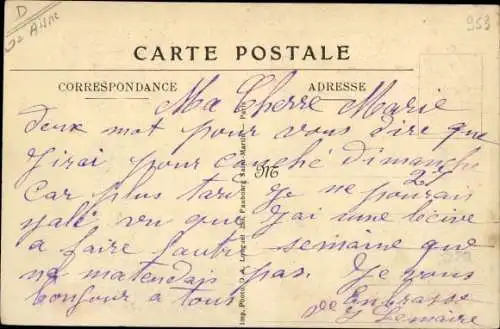 D
02 AISNE
953
CARTE POSTALE
CORRESPONDANCE
ADRESSE
Ma Cherre Marie
deux mot pour vous dire que
J irai pour couché dimanche
21
car plus tard Je ne pourais
M
yalé vu que J ai une lécive
a faire l autre semaine que
ne matendais pas. Je vous
Embrasse
bonjour a tous
De J Lemaire
Imp. Photo D. A. Longuet 250, Faubourg Saint-Martin, Paris